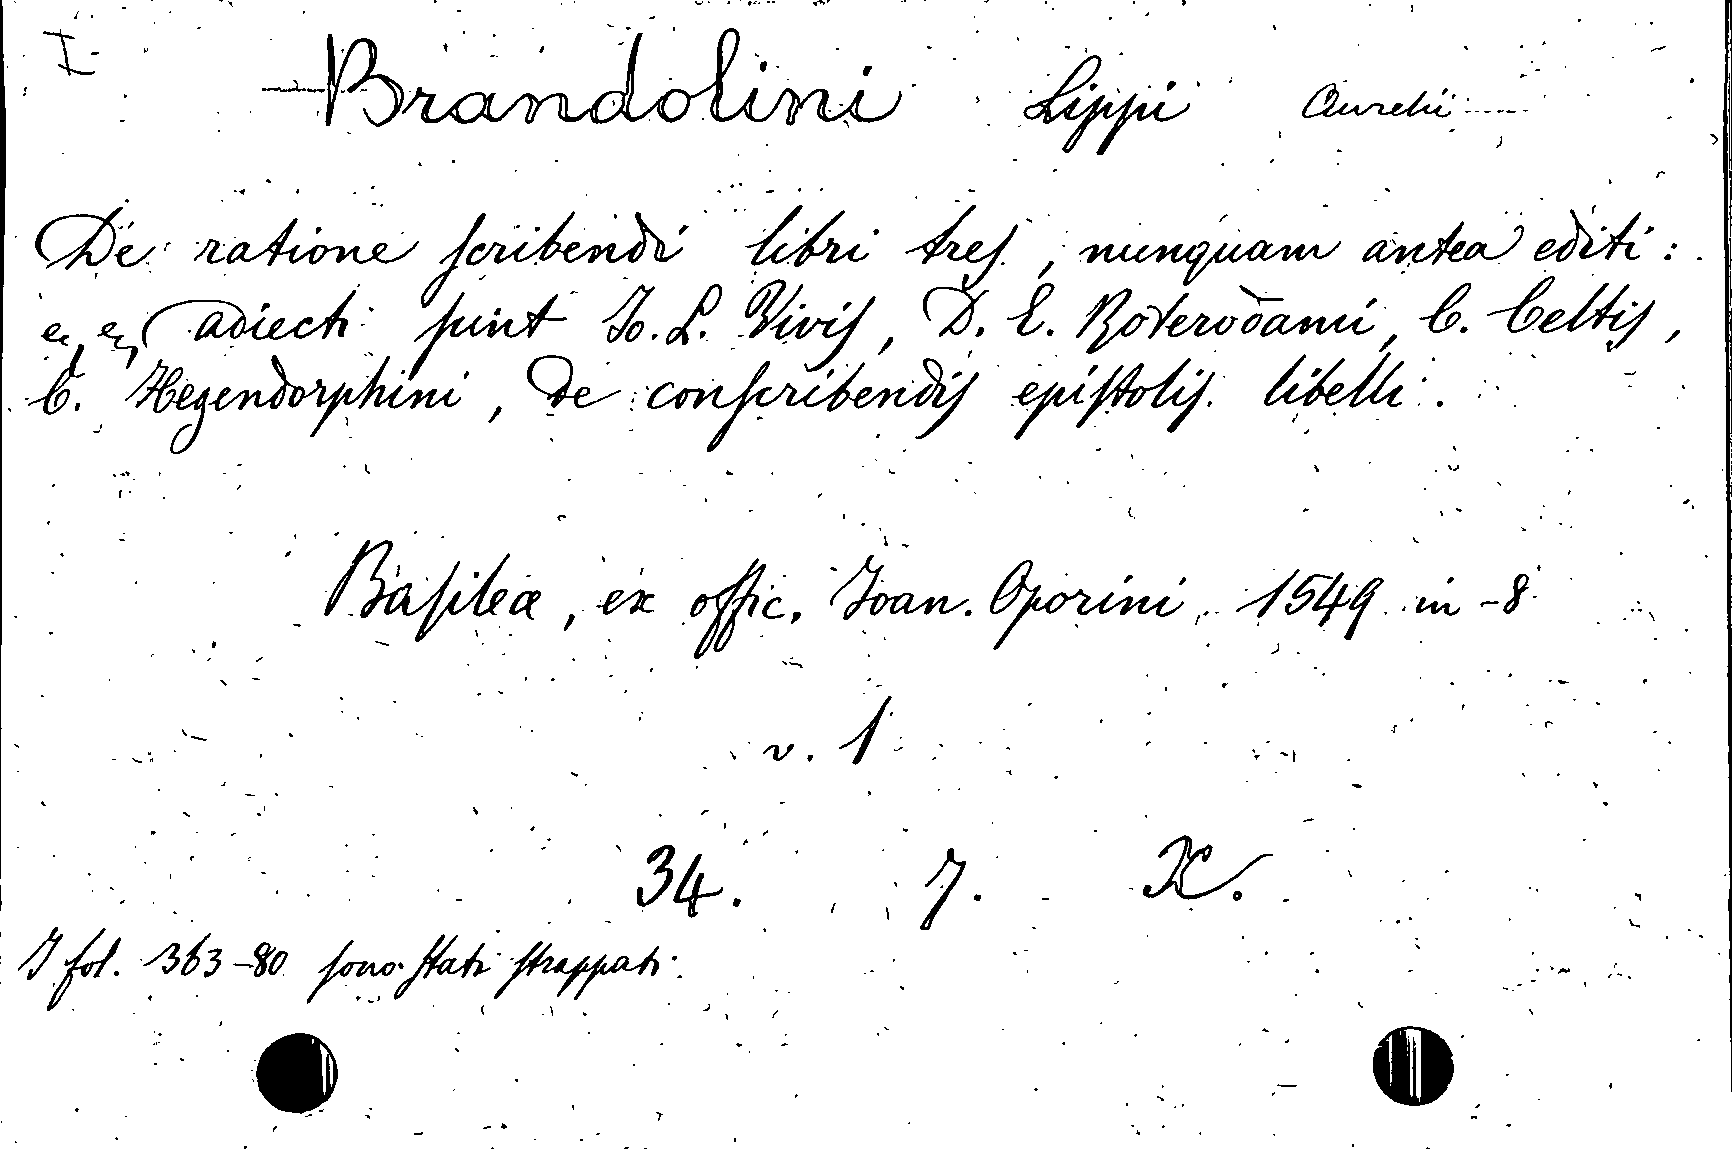 I
Brandolini Lippi Aurelii
De ratione scribendi libri tres, nunquam antea editi:
adiecti sunt Io. L. Vivis, D. E. Roterodami, C. Celtis,
C. Hegendorphini, de conscribendis epistolis libelli.
Basileæ, ex offic. Ioan. Oporini, 1549 in-8
v. 1
34. 7. K.
I fol. 363-80 sono stati strappati.